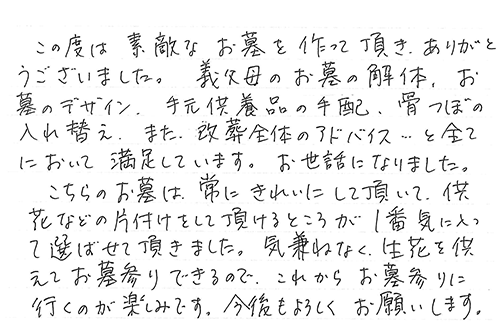 この度は 素敵な お墓を 作って 頂き、ありがと
うございました。 義父母の お墓の 解体、お
墓の デザイン、手元供養品の 手配、骨つぼの
入れ替え、また、改葬全体の アドバイス…と 全て
において 満足しています。 お世話になりました。
こちらの お墓は、常に きれいに して 頂いて、供
花などの 片付けをして 頂けるところが 1番 気に入っ
て 選ばせて 頂きました。 気兼ねなく、生花を 供
えて お墓参り できるので、これから お墓参りに
行くのが 楽しみです。今後もよろしく お願いします。